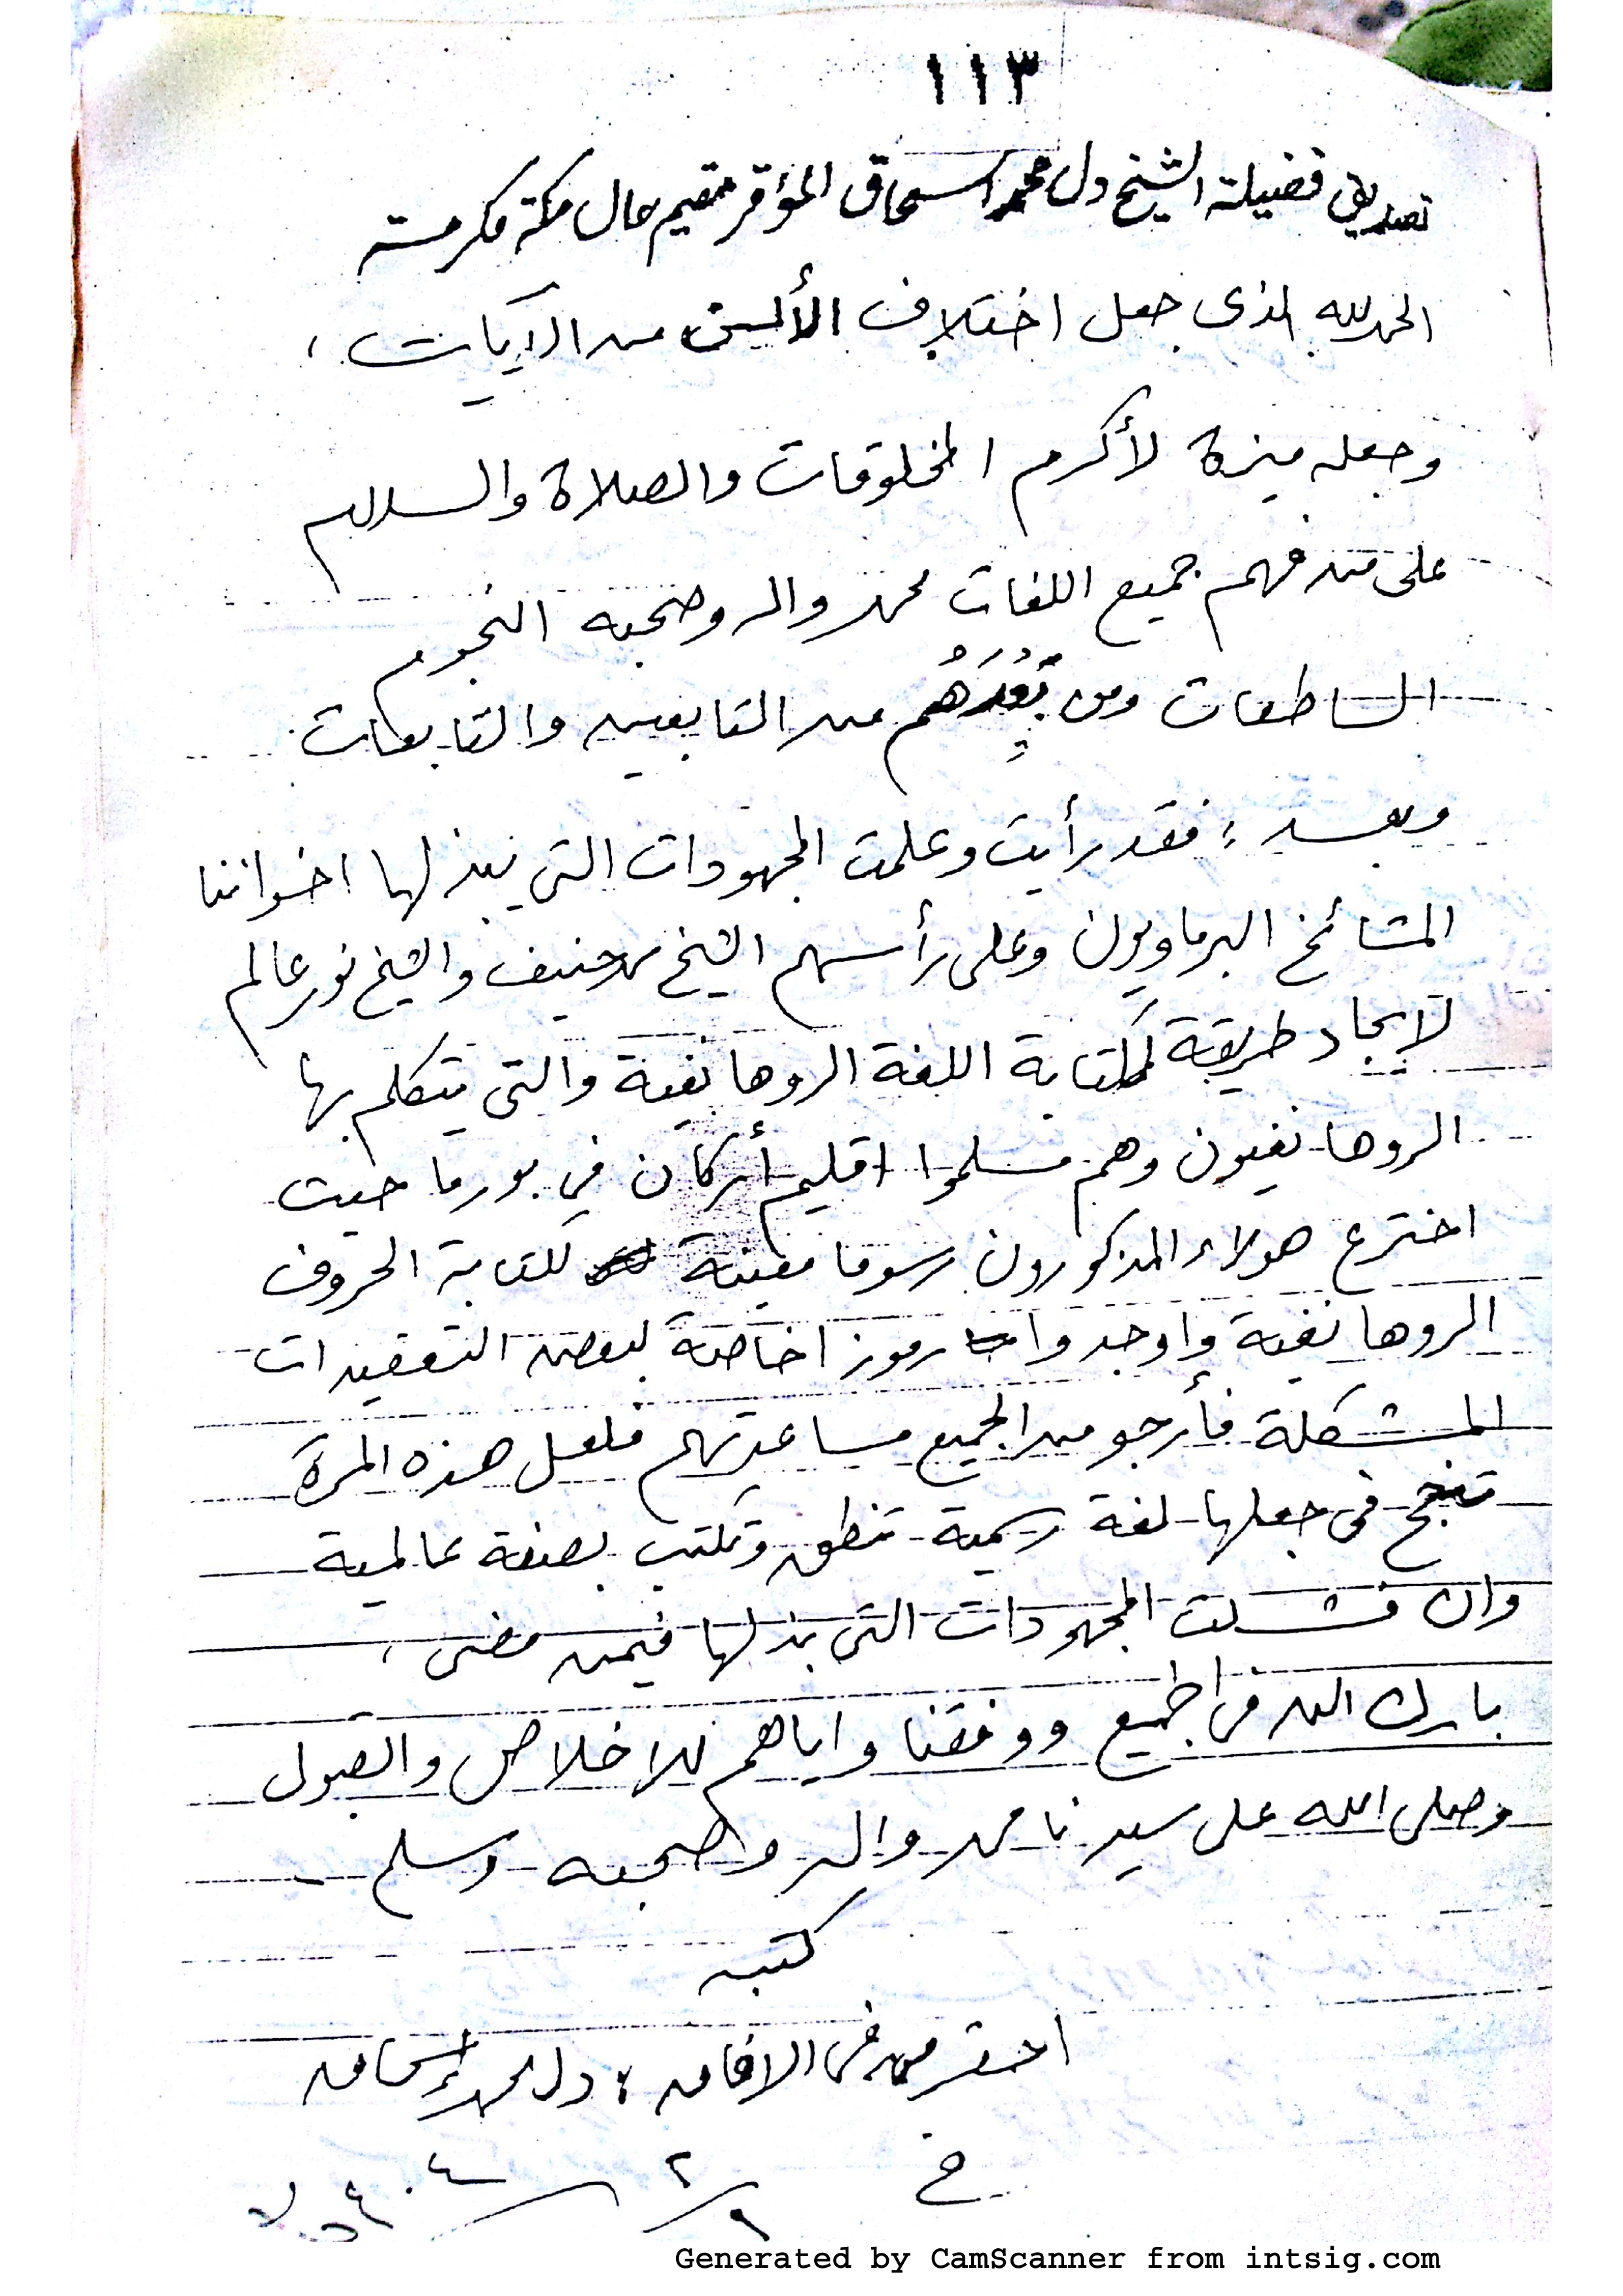 ١١٣
تصديق فضيلة الشيخ دل محمد اسحاق المؤقر مقيم حال مكة مكرمته
الحمد لله الذى جعل اختلاف الألسن من الآيات ،
وجعله ميزة لأكرم المخلوقات والصلاة والسلام
على من فهم جميع اللغات محمد واله وصحبه النجوم
الساطعات ومن بَعْدَهُم من التابعين والتابعات
وبعد ؛ فقد رأيت وعلمت المجهودات التى يبذلها اخواننا
المشائخ البرماويون وعلى رأسهم الشيخ محمد حنيف والشيخ نور عالم
لايجاد طريقة لكتابة اللغة الروهانغية والتى يتكلم بها
الروهانغيون وهم مسلموا اقليم أركان في بورما حيث
اخترع هولاء المذكورون رسوما معينة لكتابة الحروف
الروهانغية وإوجدوا رموزا خاصة لبعض التعقيدات
المشكلة فأرجو من الجميع مساعدتهم فلعل هذه المرة
تنجح فى جعلها لغة رسمية تنطق وتكتب بصفة عالمية
وان فشلت المجهودات التى بذلها فيمن مضى ،
بارك الله فى الجميع ووفقنا واياهم للاخلاص والقبول
وصلى الله على سيدنا محمد واله واصحبه وسلم
كتبه
احقر من فى الافاق ؛ دل محمد إسحاق
Generated by CamScanner from intsig.com